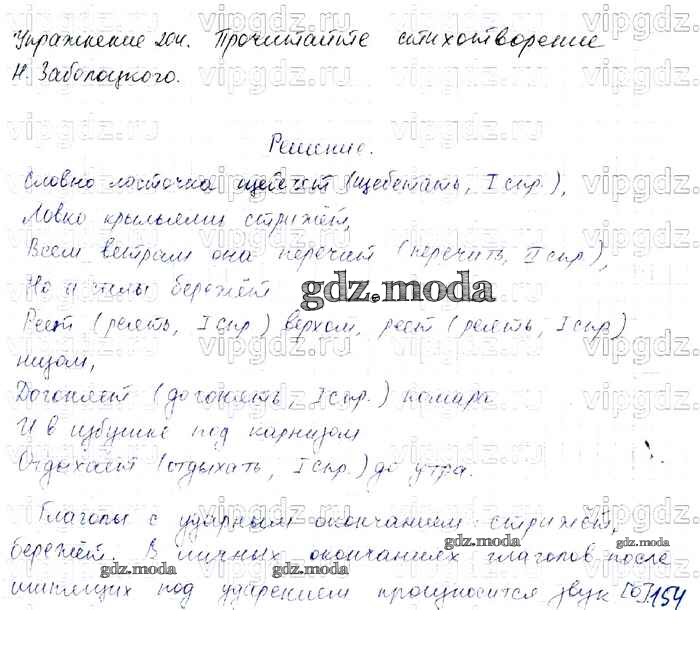 Упражнение 204. Прочитайте стихотворение
Н. Заболоцкого.
Решение.
Словно ласточка щебечет (щебетать, I спр.),
Ловко крыльями стрижёт,
Всем ветрам она перечит (перечить, II спр.),
Но и силы бережёт
gdz.moda
Реет (реять, I спр.) верхом, реет (реять, I спр.)
низом,
Догоняет (догонять, I спр.) комара
И в избушке под карнизом
Отдыхает (отдыхать, I спр.) до утра.
Глаголы с ударным окончанием: стрижёт,
бережёт. В личных окончаниях глаголов после
gdz.moda gdz.moda gdz.moda
шипящих под ударением произносится звук [о] 154